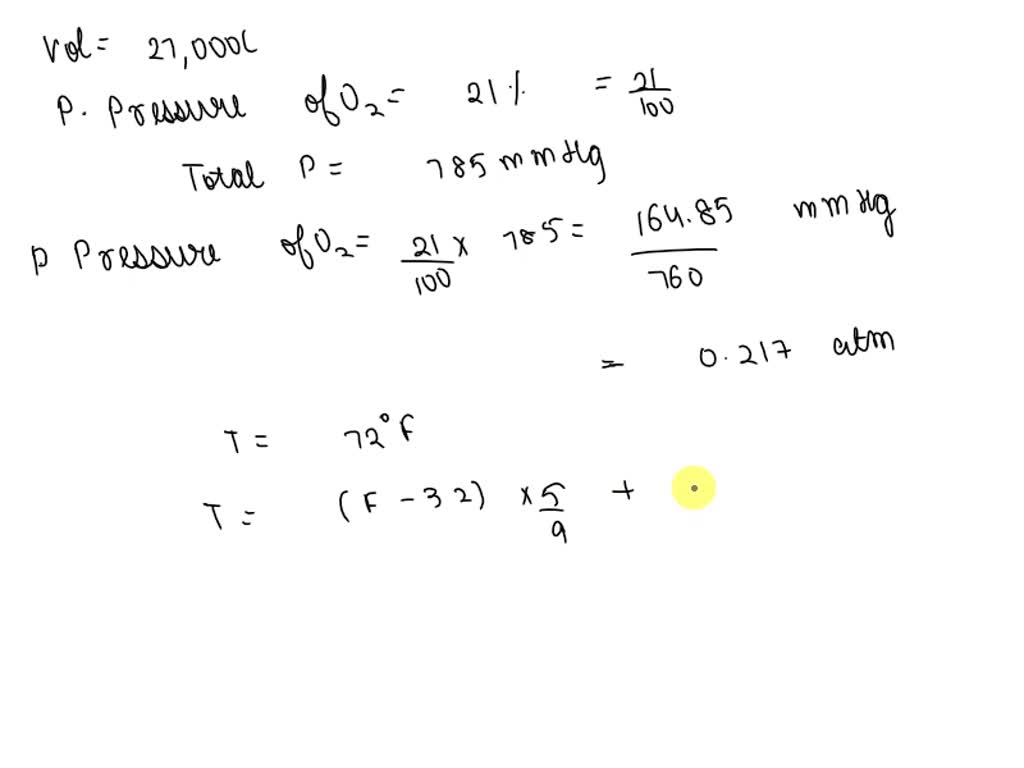 Vol = 27,000L
P. Pressure of O2 = 21% = 21/100
Total P = 785 mmHg
P Pressure of O2 = 21/100 x 785 = 164.85/760 mmHg
= 0.217 atm
T = 72°F
T = (F - 32) x 5/9 +